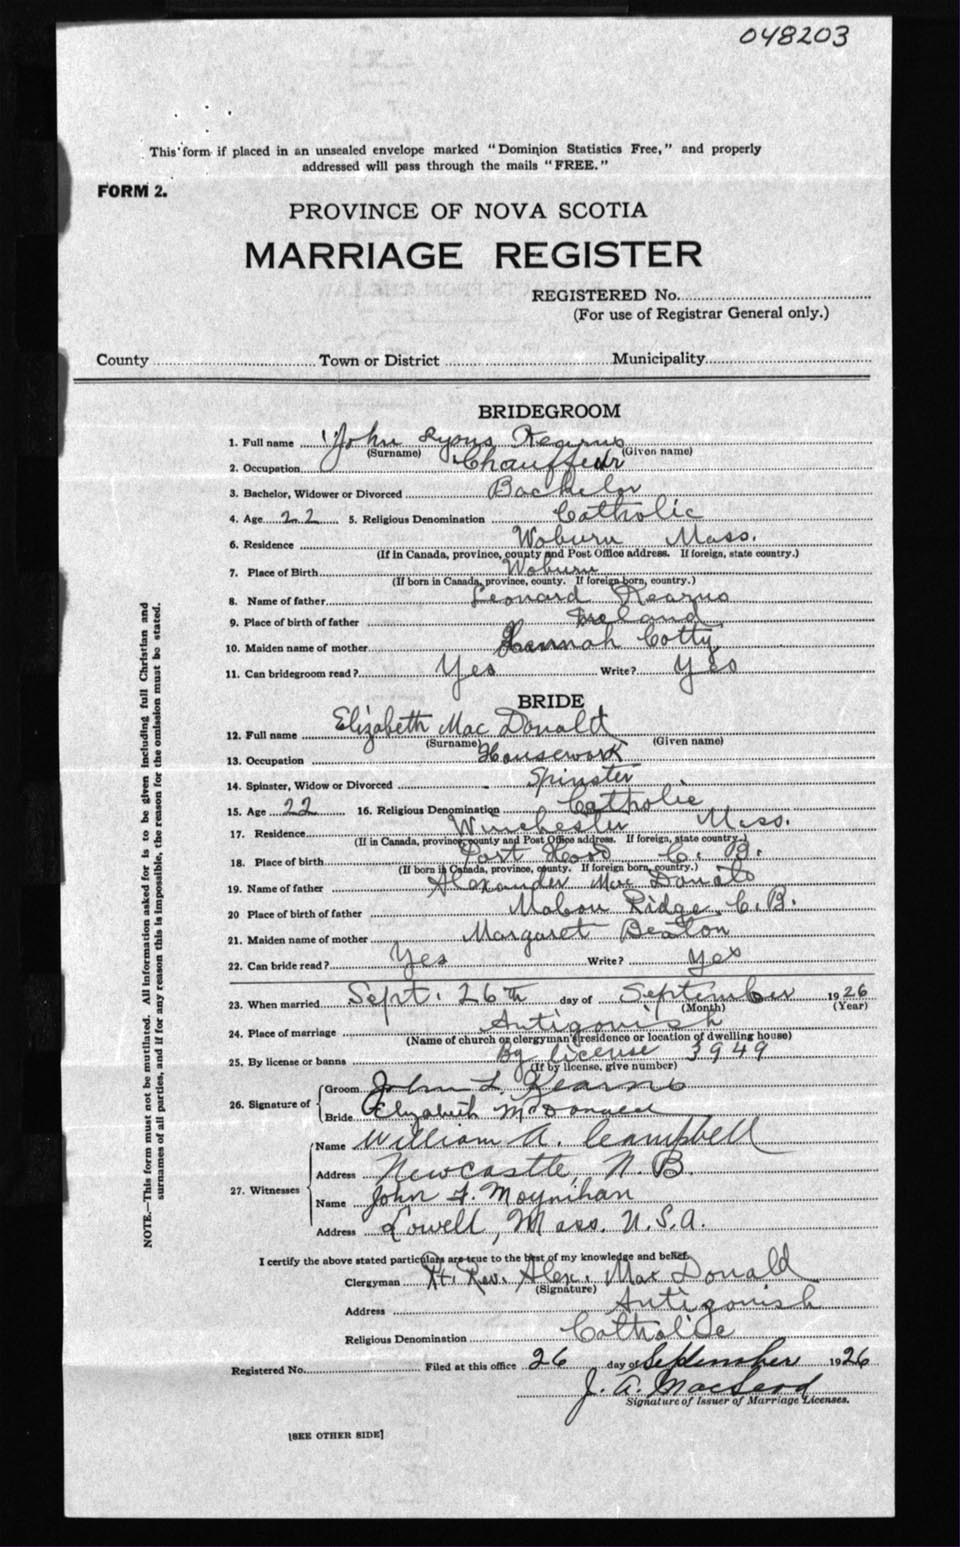 048203
This form if placed in an unsealed envelope marked "Dominion Statistics Free," and properly
addressed will pass through the mails "FREE."
FORM 2.
PROVINCE OF NOVA SCOTIA
MARRIAGE REGISTER
REGISTERED No.
(For use of Registrar General only.)
County Town or District Municipality
BRIDEGROOM
1. Full name John Lyons Kearns
(Surname) (Given name)
2. Occupation Chauffeur
3. Bachelor, Widower or Divorced Bachelor
4. Age 22 5. Religious Denomination Catholic
6. Residence Woburn Mass.
(If in Canada, province, county and Post Office address. If foreign, state country.)
7. Place of Birth Woburn
(If born in Canada, province, county. If foreign born, country.)
8. Name of father Leonard Kearns
9. Place of birth of father Ireland
10. Maiden name of mother Hannah Cotty
11. Can bridegroom read? Yes Write? Yes
BRIDE
12. Full name Elizabeth Mac Donald
(Surname) (Given name)
13. Occupation Housework
14. Spinster, Widow or Divorced Spinster
15. Age 22 16. Religious Denomination Catholic
17. Residence Winchester Mass.
(If in Canada, province, county and Post Office address. If foreign, state country.)
18. Place of birth Port Hood C. B.
(If born in Canada, province, county. If foreign born, country.)
19. Name of father Alexander Mac Donald
20 Place of birth of father Mabou Ridge, C. B.
21. Maiden name of mother Margaret Beaton
22. Can bride read? Yes Write? Yes
23. When married Sept. 26th day of September 1926
(Month) (Year)
24. Place of marriage Antigonish
(Name of church or clergyman's residence or location of dwelling house)
25. By license or banns By license 3949
(If by license, give number)
26. Signature of Groom John L. Kearns
Bride Elizabeth McDonald
27. Witnesses Name William A. Campbell
Address Newcastle, N. B.
Name John F. Moynihan
Address Lowell, Mass. U.S.A.
I certify the above stated particulars are true to the best of my knowledge and belief.
Clergyman Rt. Rev. Alex. Mac Donald
(Signature)
Address Antigonish
Religious Denomination Catholic
Registered No. Filed at this office 26 day of September 1926
J. A. MacLeod
Signature of Issuer of Marriage Licenses.
[SEE OTHER SIDE]
NOTE.—This form must not be mutilated. All information asked for is to be given including full Christian and
surnames of all parties, and if for any reason this is impossible, the reason for the omission must be stated.